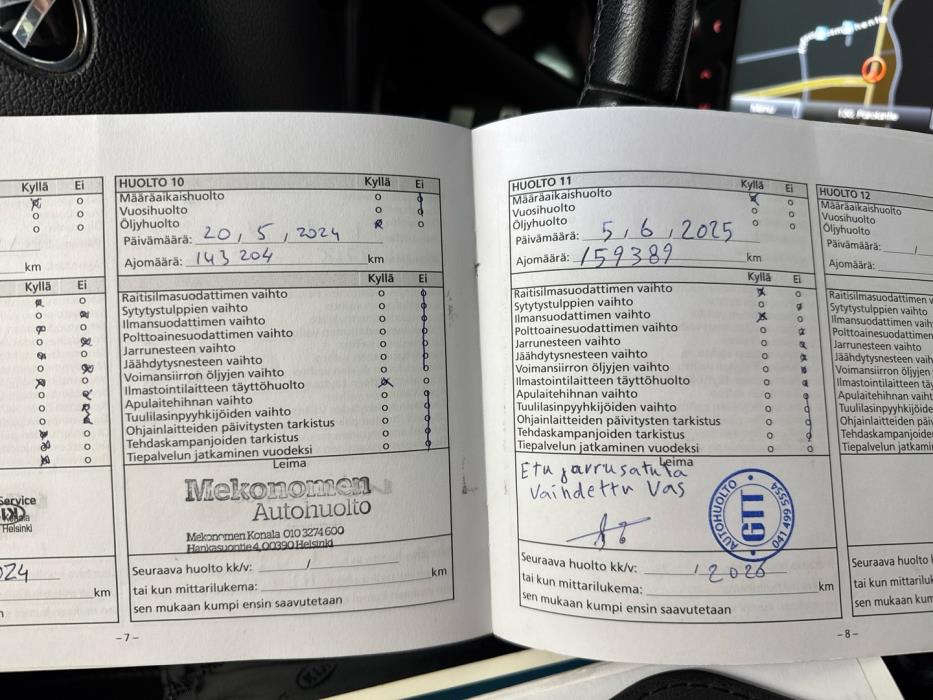 Kyllä Ei
km
Kyllä Ei
Service
Konala
Helsinki
024
km
HUOLTO 10 Kyllä Ei
Määräaikaishuolto
Vuosihuolto
Öljyhuolto
Päivämäärä: 20, 5, 2024
Ajomäärä: 143 204 km
Kyllä Ei
Raitisilmasuodattimen vaihto
Sytytystulppien vaihto
Ilmansuodattimen vaihto
Polttoainesuodattimen vaihto
Jarrunesteen vaihto
Jäähdytysnesteen vaihto
Voimansiirron öljyjen vaihto
Ilmastointilaitteen täyttöhuolto
Apulaitehihnan vaihto
Tuulilasinpyyhkijöiden vaihto
Ohjainlaitteiden päivitysten tarkistus
Tehdaskampanjoiden tarkistus
Tiepalvelun jatkaminen vuodeksi
Leima
Mekonomen
Autohuolto
Mekonomen Konala 010 3274 600
Hankasuontie 4, 00390 Helsinki
Seuraava huolto kk/v: /
tai kun mittarilukema: km
sen mukaan kumpi ensin saavutetaan
- 7 -
HUOLTO 11 Kyllä Ei
Määräaikaishuolto
Vuosihuolto
Öljyhuolto
Päivämäärä: 5, 6, 2025
Ajomäärä: 159389 km
Kyllä Ei
Raitisilmasuodattimen vaihto
Sytytystulppien vaihto
Ilmansuodattimen vaihto
Polttoainesuodattimen vaihto
Jarrunesteen vaihto
Jäähdytysnesteen vaihto
Voimansiirron öljyjen vaihto
Ilmastointilaitteen täyttöhuolto
Apulaitehihnan vaihto
Tuulilasinpyyhkijöiden vaihto
Ohjainlaitteiden päivitysten tarkistus
Tehdaskampanjoiden tarkistus
Tiepalvelun jatkaminen vuodeksi
Leima
Etu jarrusatula
Vaihdettu Vas
AUTOHUOLTO
GTT
041 499 5554
Seuraava huolto kk/v: / 2026
tai kun mittarilukema: km
sen mukaan kumpi ensin saavutetaan
- 8 -
HUOLTO 12
Määräaikaishuolto
Vuosihuolto
Öljyhuolto
Päivämäärä: /
Ajomäärä:
Raitisilmasuodattimen v
Sytytystulppien vaihto
Ilmansuodattimen vaihto
Polttoainesuodattimen
Jarrunesteen vaihto
Jäähdytysnesteen vaihto
Voimansiirron öljyjen va
Ilmastointilaitteen täy
Apulaitehihnan vaihto
Tuulilasinpyyhkijöide
Ohjainlaitteiden päiv
Tehdaskampanjoiden
Tiepalvelun jatkami
Seuraava huolto k
tai kun mittariluk
sen mukaan kum
Menu